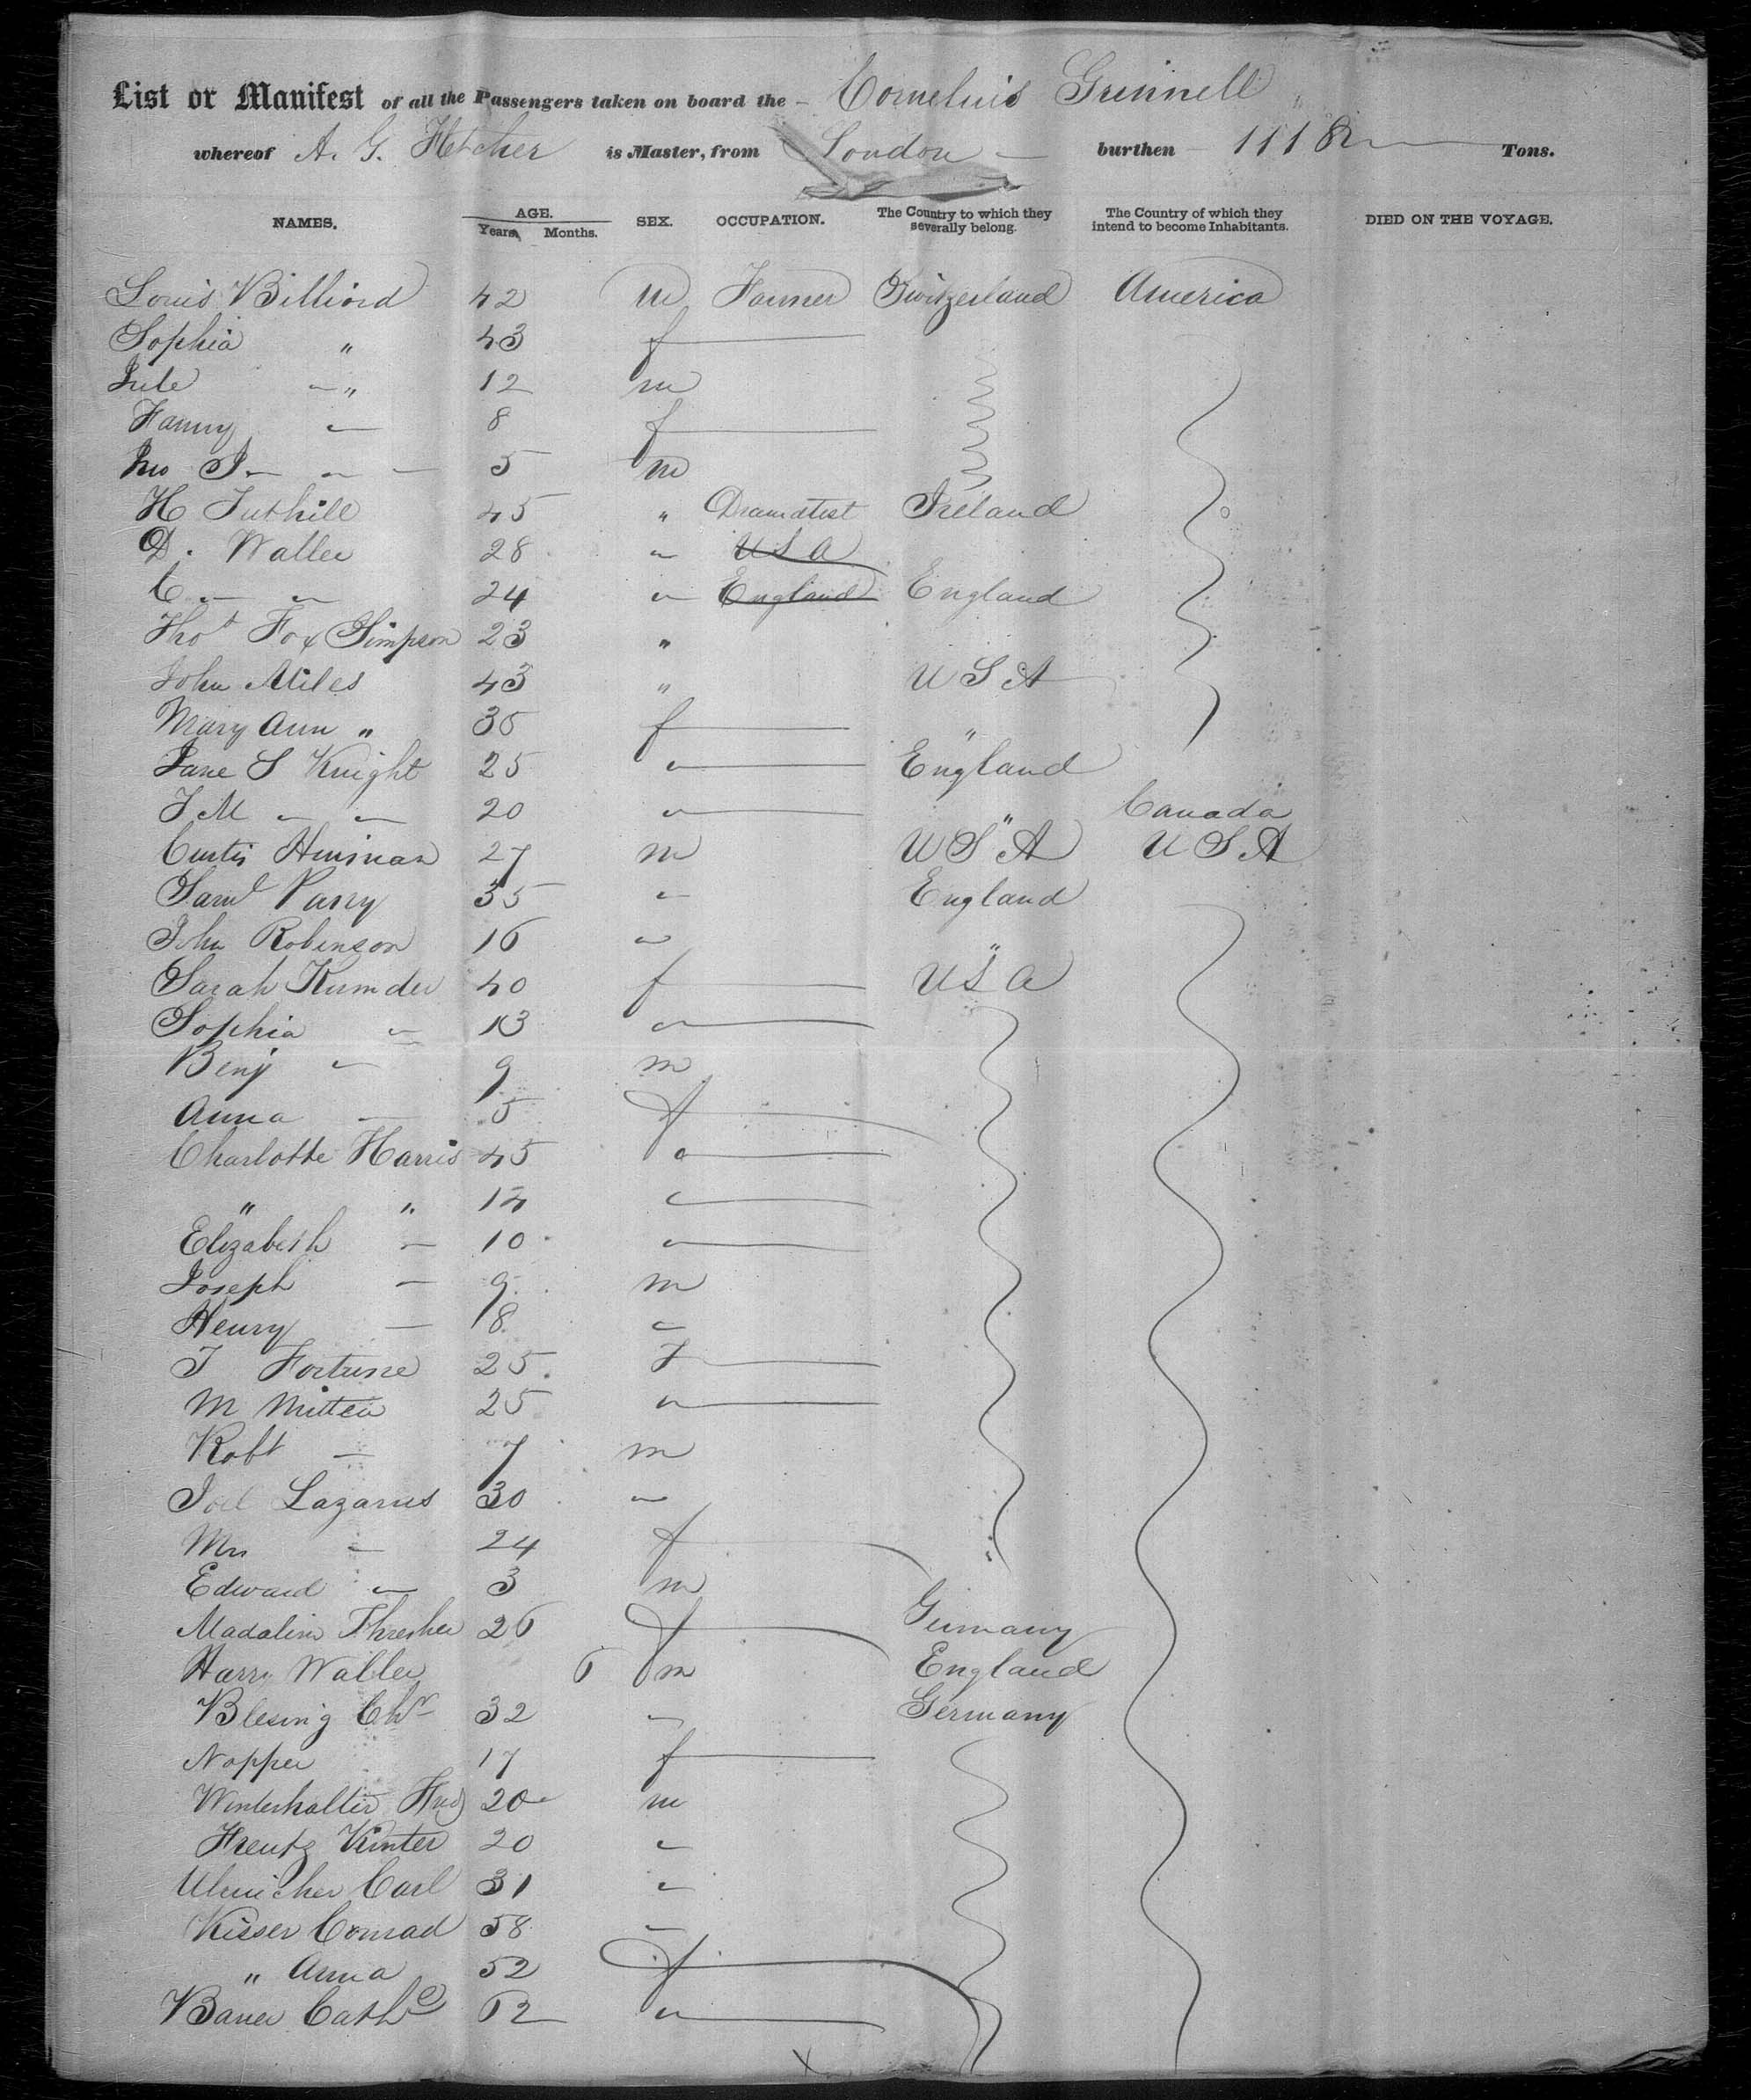 List or Manifest of all the Passengers taken on board the - Cornelius Grinnell
whereof A. G. Fletcher is Master, from London burthen 1118 Tons.
NAMES. AGE. Years, Months. SEX. OCCUPATION. The Country to which they severally belong. The Country of which they intend to become Inhabitants. DIED ON THE VOYAGE.
Louis Billiord 42 m Farmer Switzerland America
Sophia " 43 f
Jule " 12 m
Fanny 8 f
Jno J 5 m
H Tuthill 45 " Dramatist Ireland
D. Waller 28 " USA
C 24 " England England
Thos Fox Simpson 23 "
John Miles 43 " USA
Mary Ann " 35 f "
Jane S Knight 25 " England
J M " " 20 " " Canada
Curtis Hinman 27 m USA USA
Saml Parry 35 " England
John Robinson 16 " "
Sarah Kumder 40 f USA
Sophia " 13 "
Benj " 9 m
Anna 5 f
Charlotte Harris 45 "
" " 14 "
Elizabeth 10 "
Joseph 9 m
Henry 8 "
J Fortune 25 f
M Mitten 25 "
Robt 7 m
Joel Lazarus 30 "
Mrs 24 f
Edward " 3 m
Madalin Thresher 26 f Germany
Harry Waller 6 m England
Blesing Chr 32 Germany
Nopper 17 f
Winterhalter 20 m
Kinter 20 "
Carl 31 "
Kisser Conrad 58
" Anna 52 f
Bauer Cathe 62 "